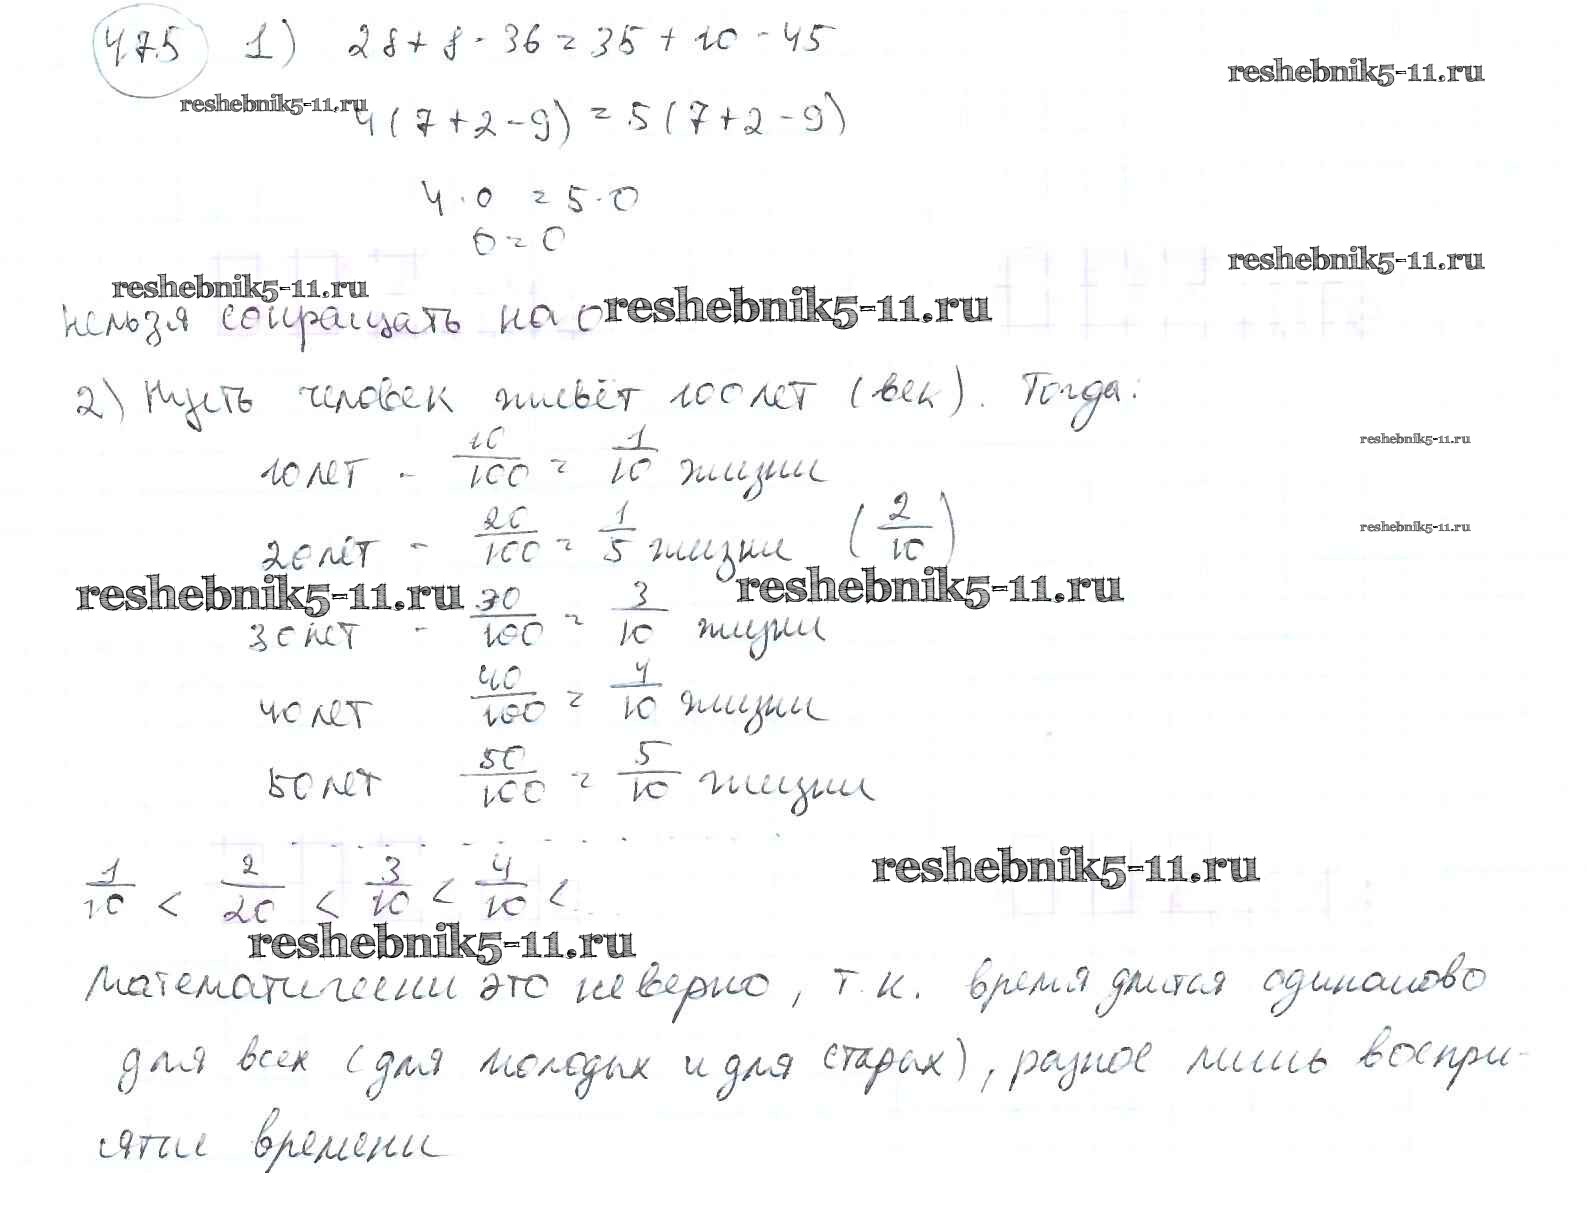 475 1) 28 + 8 - 36 = 35 + 10 - 45
reshebnik5-11.ru
reshebnik5-11.ru
4(7+2-9) = 5(7+2-9)
4·0 = 5·0
0=0
reshebnik5-11.ru
reshebnik5-11.ru
нельзя сокращать на 0
reshebnik5-11.ru
2) Пусть человек живёт 100 лет (век). Тогда:
reshebnik5-11.ru
10 лет - 10/100 = 1/10 жизни
reshebnik5-11.ru
20 лет - 20/100 = 1/5 жизни (2/10)
reshebnik5-11.ru
reshebnik5-11.ru
30 лет - 30/100 = 3/10 жизни
40 лет 40/100 = 4/10 жизни
50 лет 50/100 = 5/10 жизни
reshebnik5-11.ru
1/10 < 2/20 < 3/10 < 4/10 < ...
reshebnik5-11.ru
Математически это неверно, т.к. время длится одинаково
для всех (для молодых и для старых), разное лишь воспри-
ятие времени